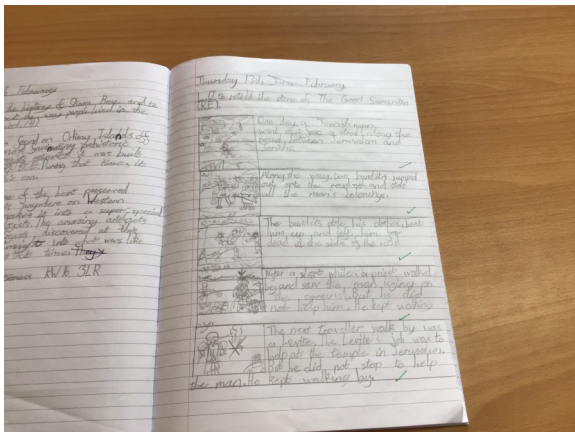 February
the history of Skara Brae, and to
people lived in the
found on Orkney Islands
prehistoric
was built
During that time, it
of the best preserved
anywhere on Western
makes it into a super special
The amazing
discovered at this
into what was like
that time. They
KWK 3LR
Thursday 13th February
to retell the story of The Good Samaritan
(RE).
One day, a Jewish man
went out on a along the
road between Jerusalem and
Jericho.
Along the way, two bandits jumped
out onto the and stole
all the man's belongings.
The bandits stole his clothes, beat
him up, and left him
dead at the side of the road
After a short while, a priest walked
by and saw the man lying on
the ground, but he did
not help him. He kept walking
The next traveller walk by was
a Levite. The Levite's job was to
help at the temple in Jerusalem.
But he did not stop to help
the man. He kept walking by.